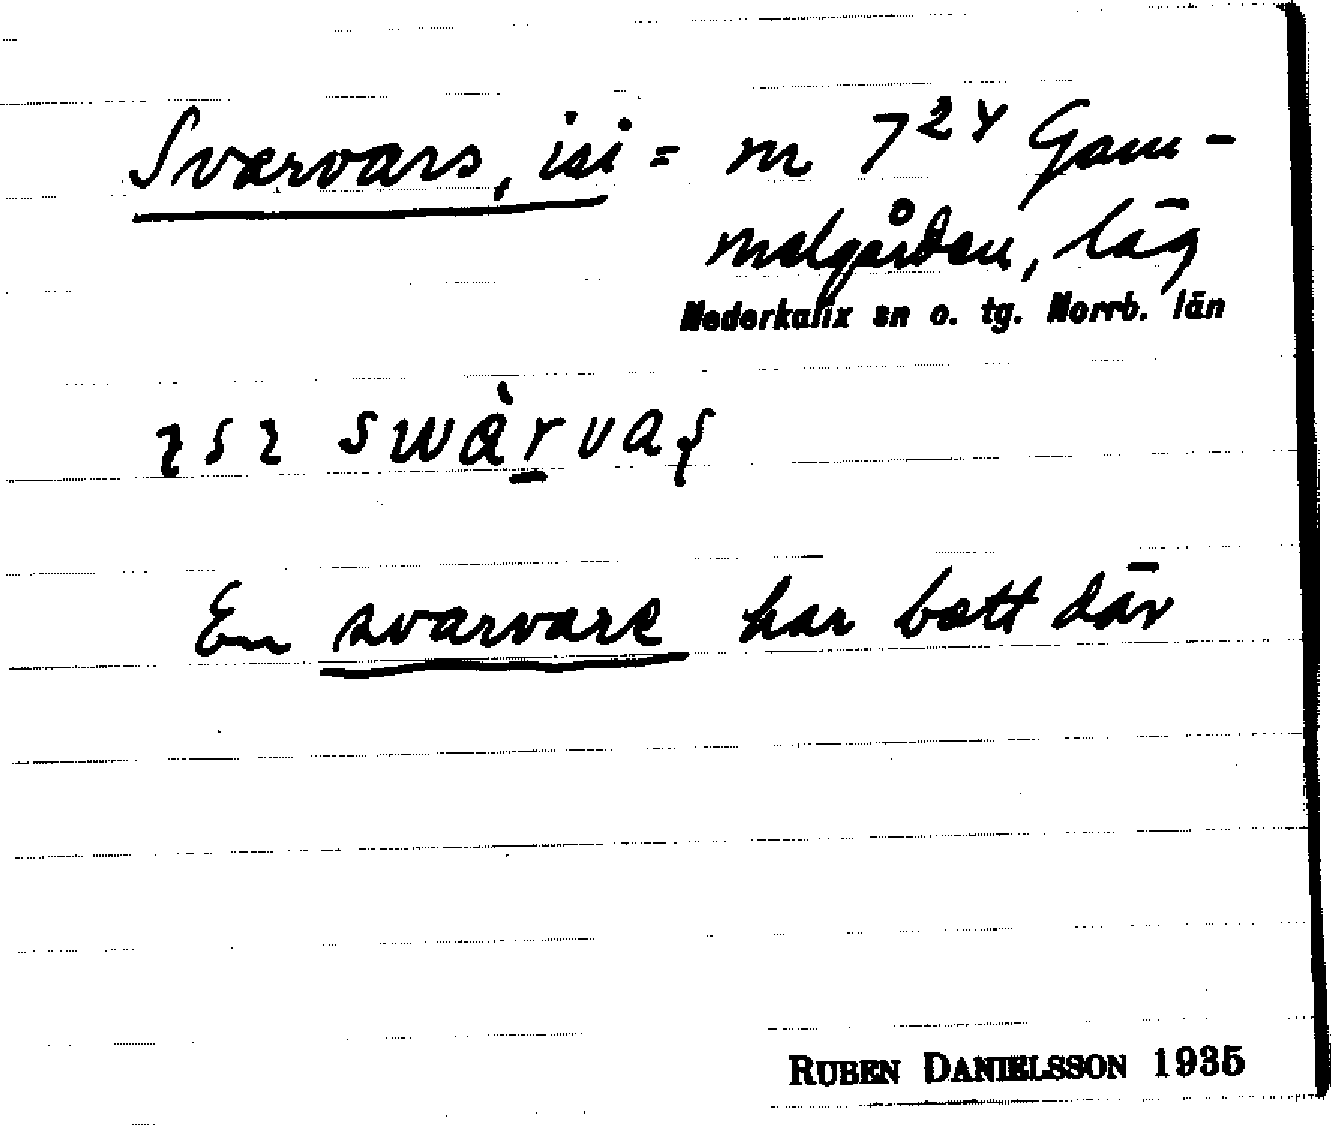 Svarvars, isi = m 7²⁴ Gam-
malgården, läg
Nederkalix sn o. tg. Norrb. län
ɿsɿ swàr̲vaʂ
En svarvare har bott där
RUBEN DANIELSSON 1935